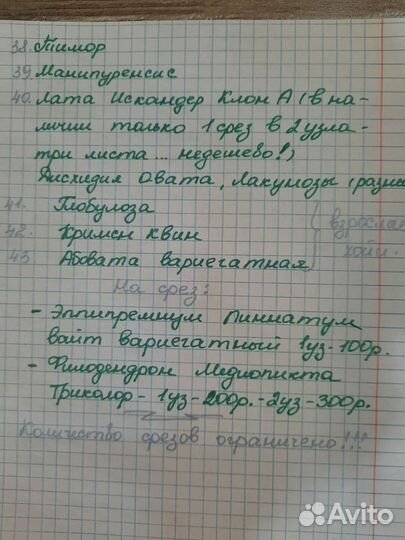 38. Тимор
39. Манипуренсис
40. Лата Искандер Клон А (в на-
личии только 1 срез в 2 узла-
три листа... недешево!)
Дисхидия Овата, Лакунозы (разны
41. Глобулоза
42. Кримсн Квин
43. Абовата вариегатная
взрослые
хойи.
На срез:
- Эппипремнум Пиннатум
вайт вариегатный 1уз-100р.
- Филодендрон Медиопикта
Триколор - 1уз-200р. - 2уз-300р.
Количество срезов ограничено!!!
Avito